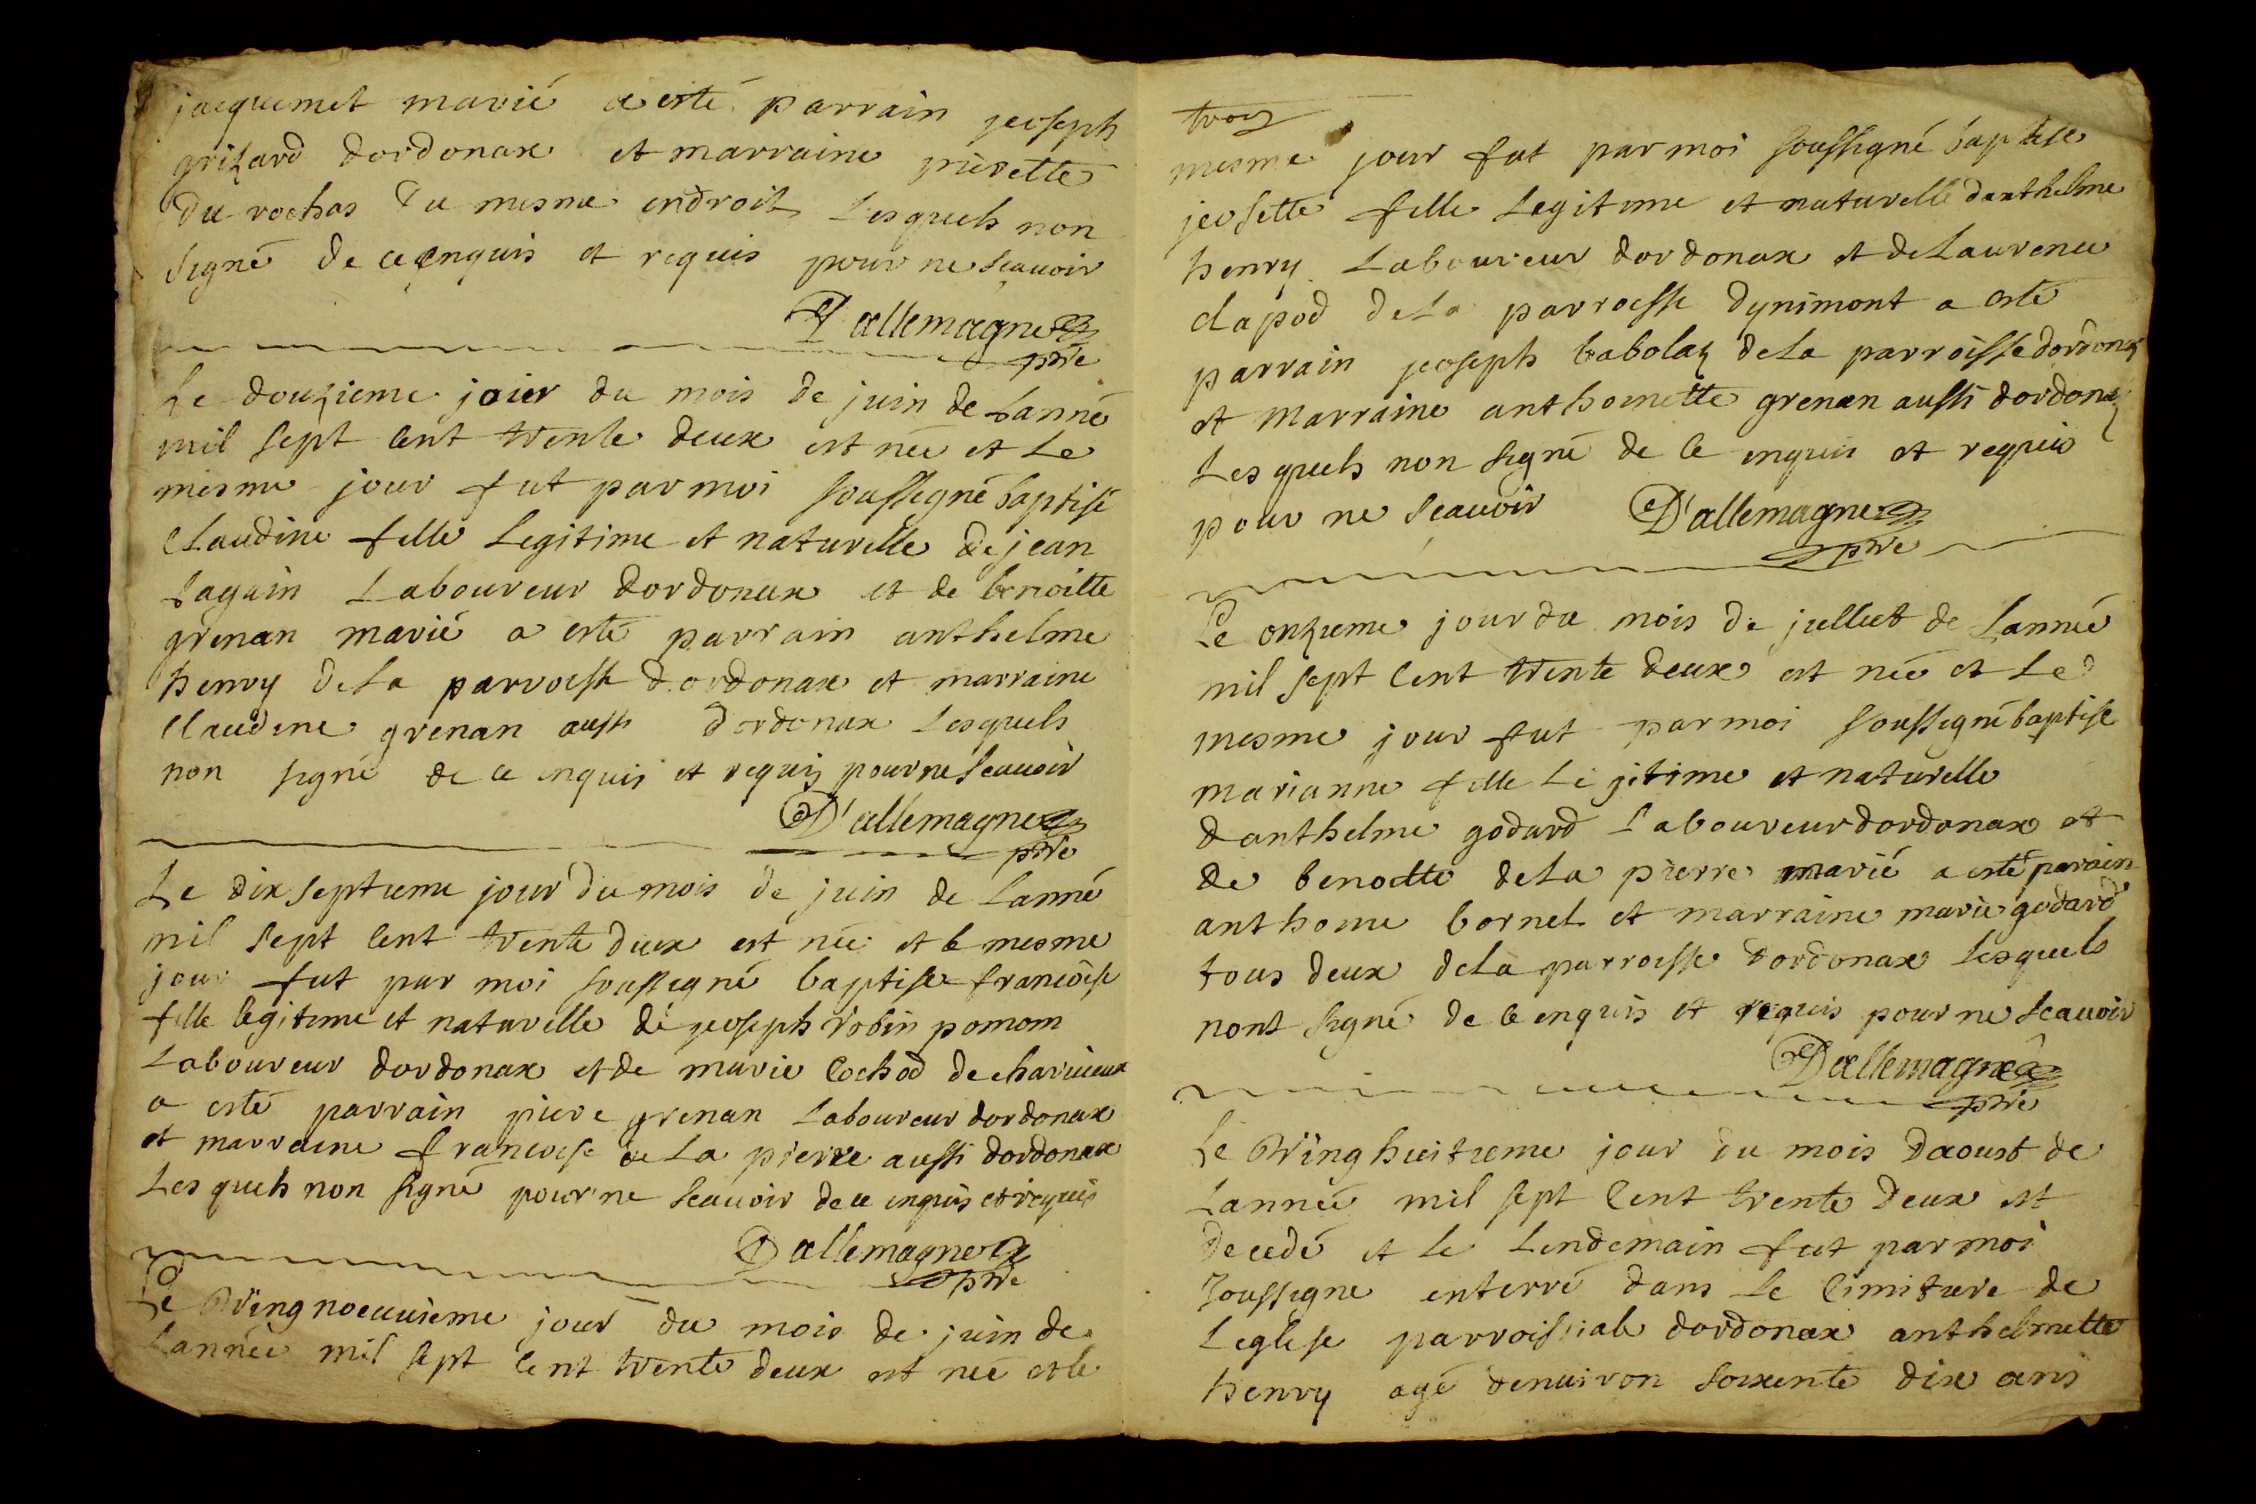 jacquemet marié a esté parrain jeoseph
grizard dordonax et marraine pierette
du rochas du mesme endroit Lesquels non
signé de ce enquis et requis pour ne scauoir
D'allemagne
ptre
Le douzieme jour du mois de juin de Lanné
mil sept cent trente deux est neé et Le
mesme jour fut par moi soussigné baptisé
claudine fille Legitime et naturelle de jean
Sagain Laboureur dordonax et de benoitte
grenan marié a esté parrain anthelme
henry de La parroisse dordonax et marraine
claudine grenan aussi dordonax Lesquels
non signé de ce enquis et requis pour ne scauoir
D'allemagne
ptre
Le dix septieme jour du mois de juin de Lanné
mil sept cent trente deux est neé et le mesme
jour fut par moi soussigné baptise francoise
fille legitime et naturelle de jeoseph robin pomom
Laboureur dordonax et de marie cochod de charuieux
a esté parrain piere grenan Laboureur dordonax
et marraine francoise de La pierre aussi dordonax
Lesquels non signé pour ne scauoir de ce enquis et requis
D'allemagne
ptre
Le Vingnoeuuieme jour du mois de juin de
Lanneé mil sept cent trente deux est neé et le
trois
mesme jour fut par moi soussigné baptise
jeosette fille Legitime et naturelle danthelme
henry Laboureur dordonax et de Laurence
clapod de La parroisse dynimont a esté
parrain jeoseph babolaz de La parroisse dordonax
et Marraine anthoinette grenan aussi dordonax
Lesquels non signé de ce enquis et requis
pour ne scauoir D'allemagne
ptre
Le onzieme jour du mois de julliet de Lanneé
mil sept cent trente deux est neé et Le
mesme jour fut par moi soussigné baptise
marianne fille Lejitime et naturelle
danthelme godard Laboureur dordonax et
de benoitte de La pierre marié a esté parain
anthoine bornet et marraine marie godard
tous deux de La parroisse dordonax Lesquels
nont signé de ce enquis et requis pour ne scauoir
D'allemagne
ptre
Le Vinghuitieme jour du mois daoust de
Lanneé mil sept cent trente deux est
decedé et le Lendemain fut par moi
soussigne enterré dans Le cimitiere de
Leglise parroissiale dordonax anthelmette
henry agé denuiron soixente dix ans